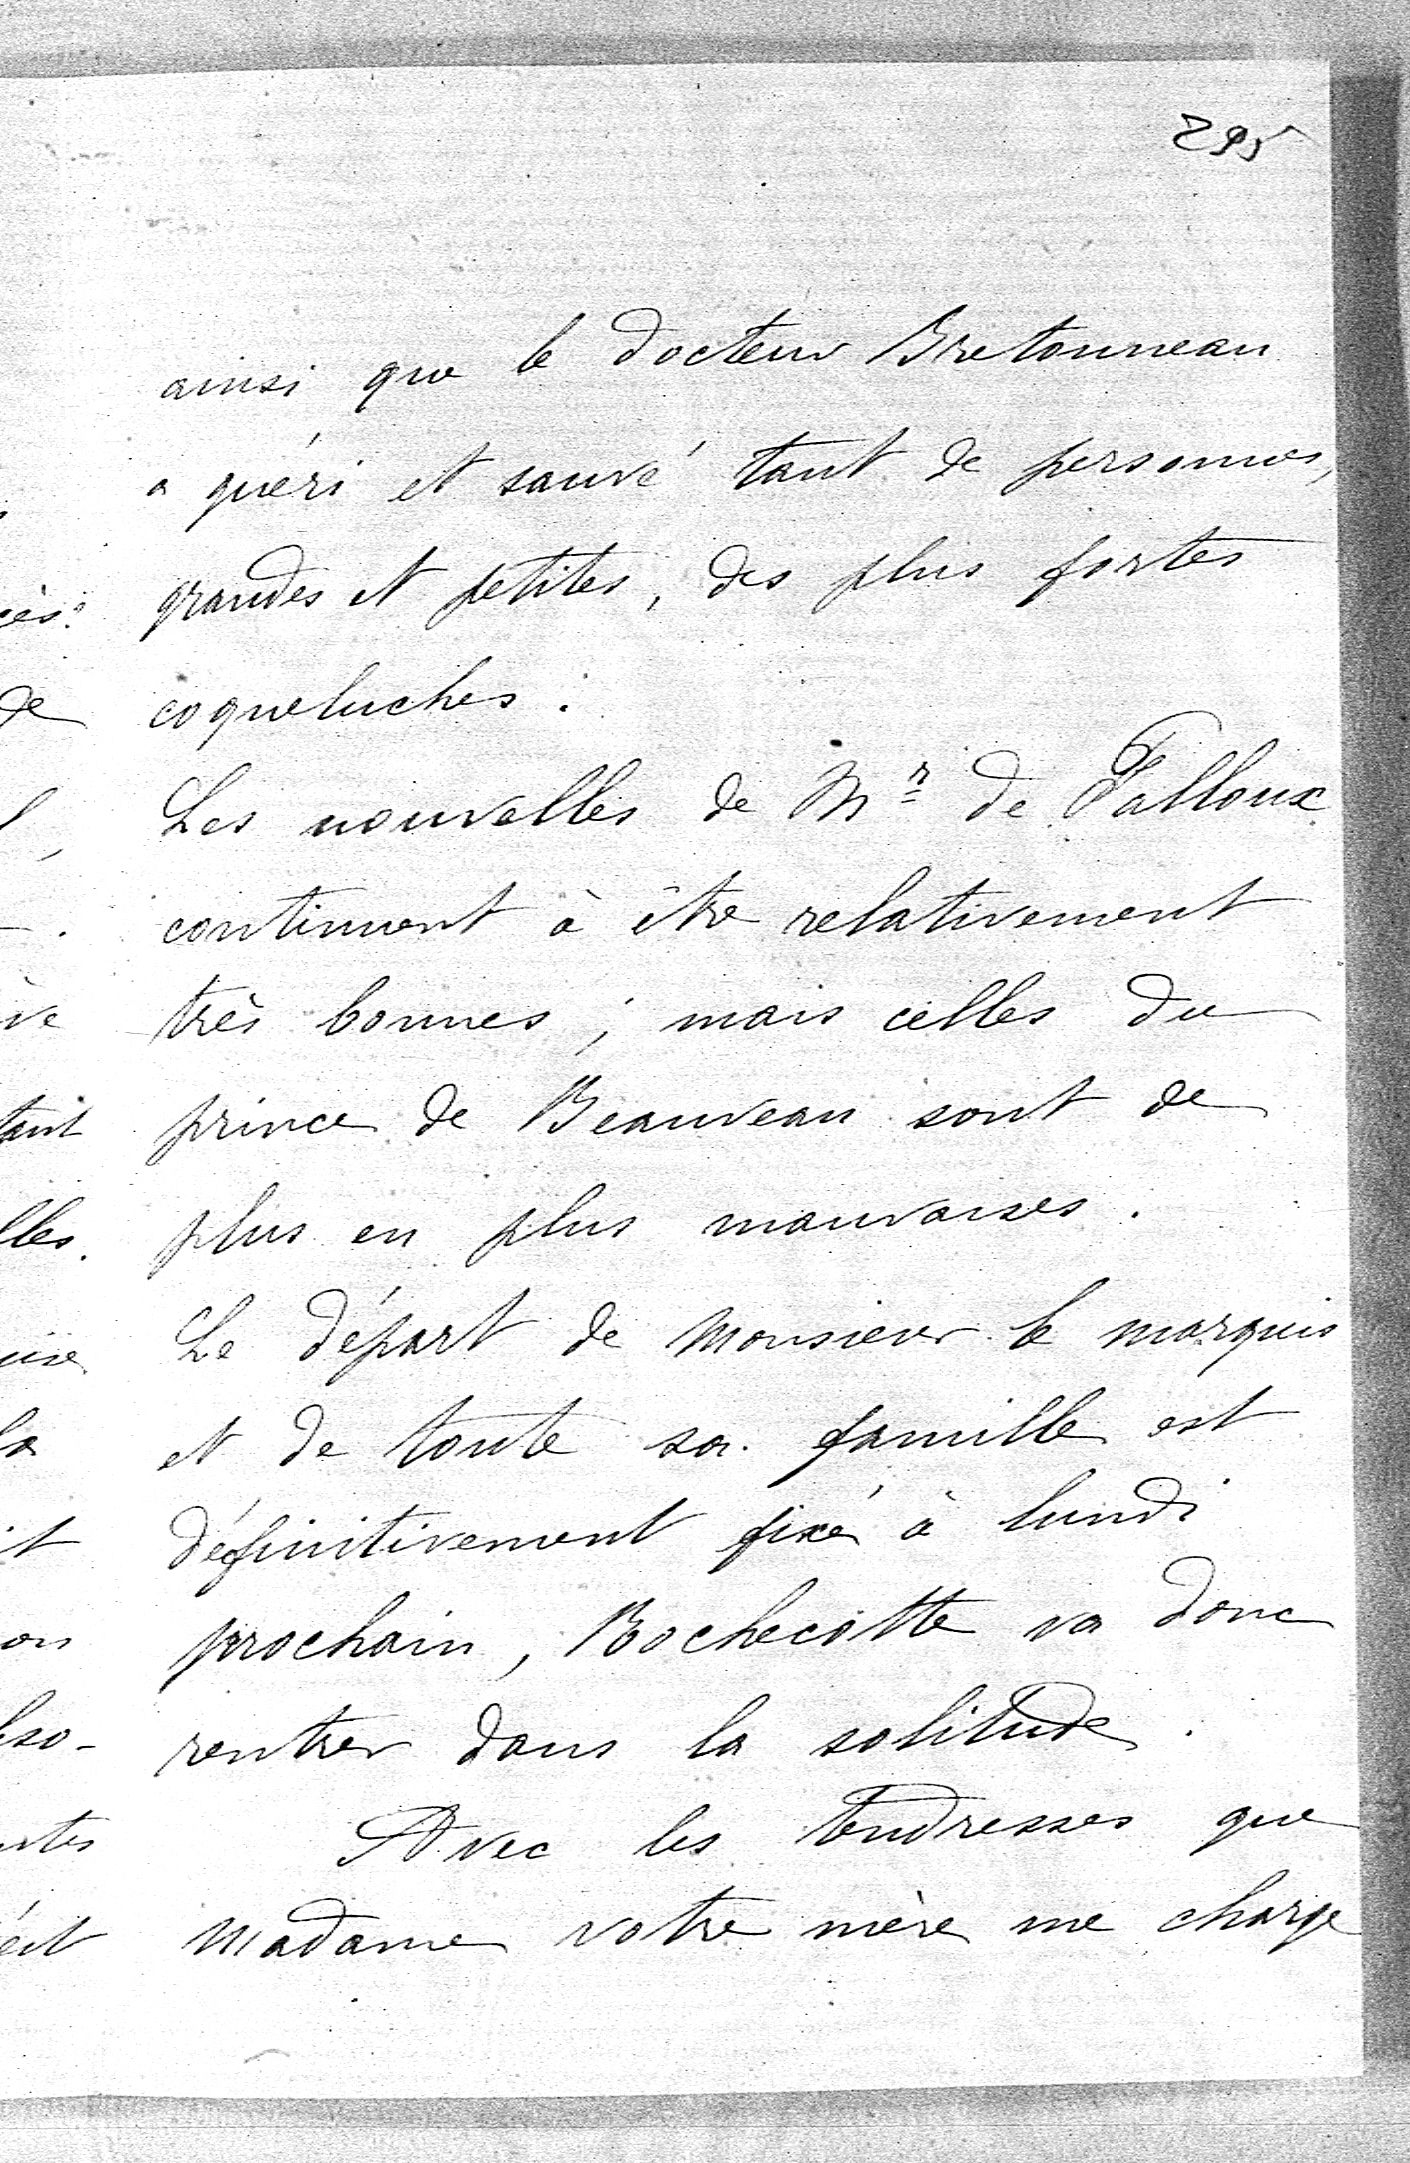 295
ainsi que le docteur Bretonneau
a guéri et sauvé tant de personnes,
grandes et petites, des plus fortes
coqueluches.
Les nouvelles de Mr de Falloux
continuent à être relativement
très bonnes ; mais celles du
prince de Beauveau sont de
plus en plus mauvaises.
Le départ de Monsieur le marquis
et de toute sa famille est
définitivement fixé à lundi
prochain, Rochecotte va donc
rentrer dans la solitude.
Avec les tendresses que
Madame votre mère me charge